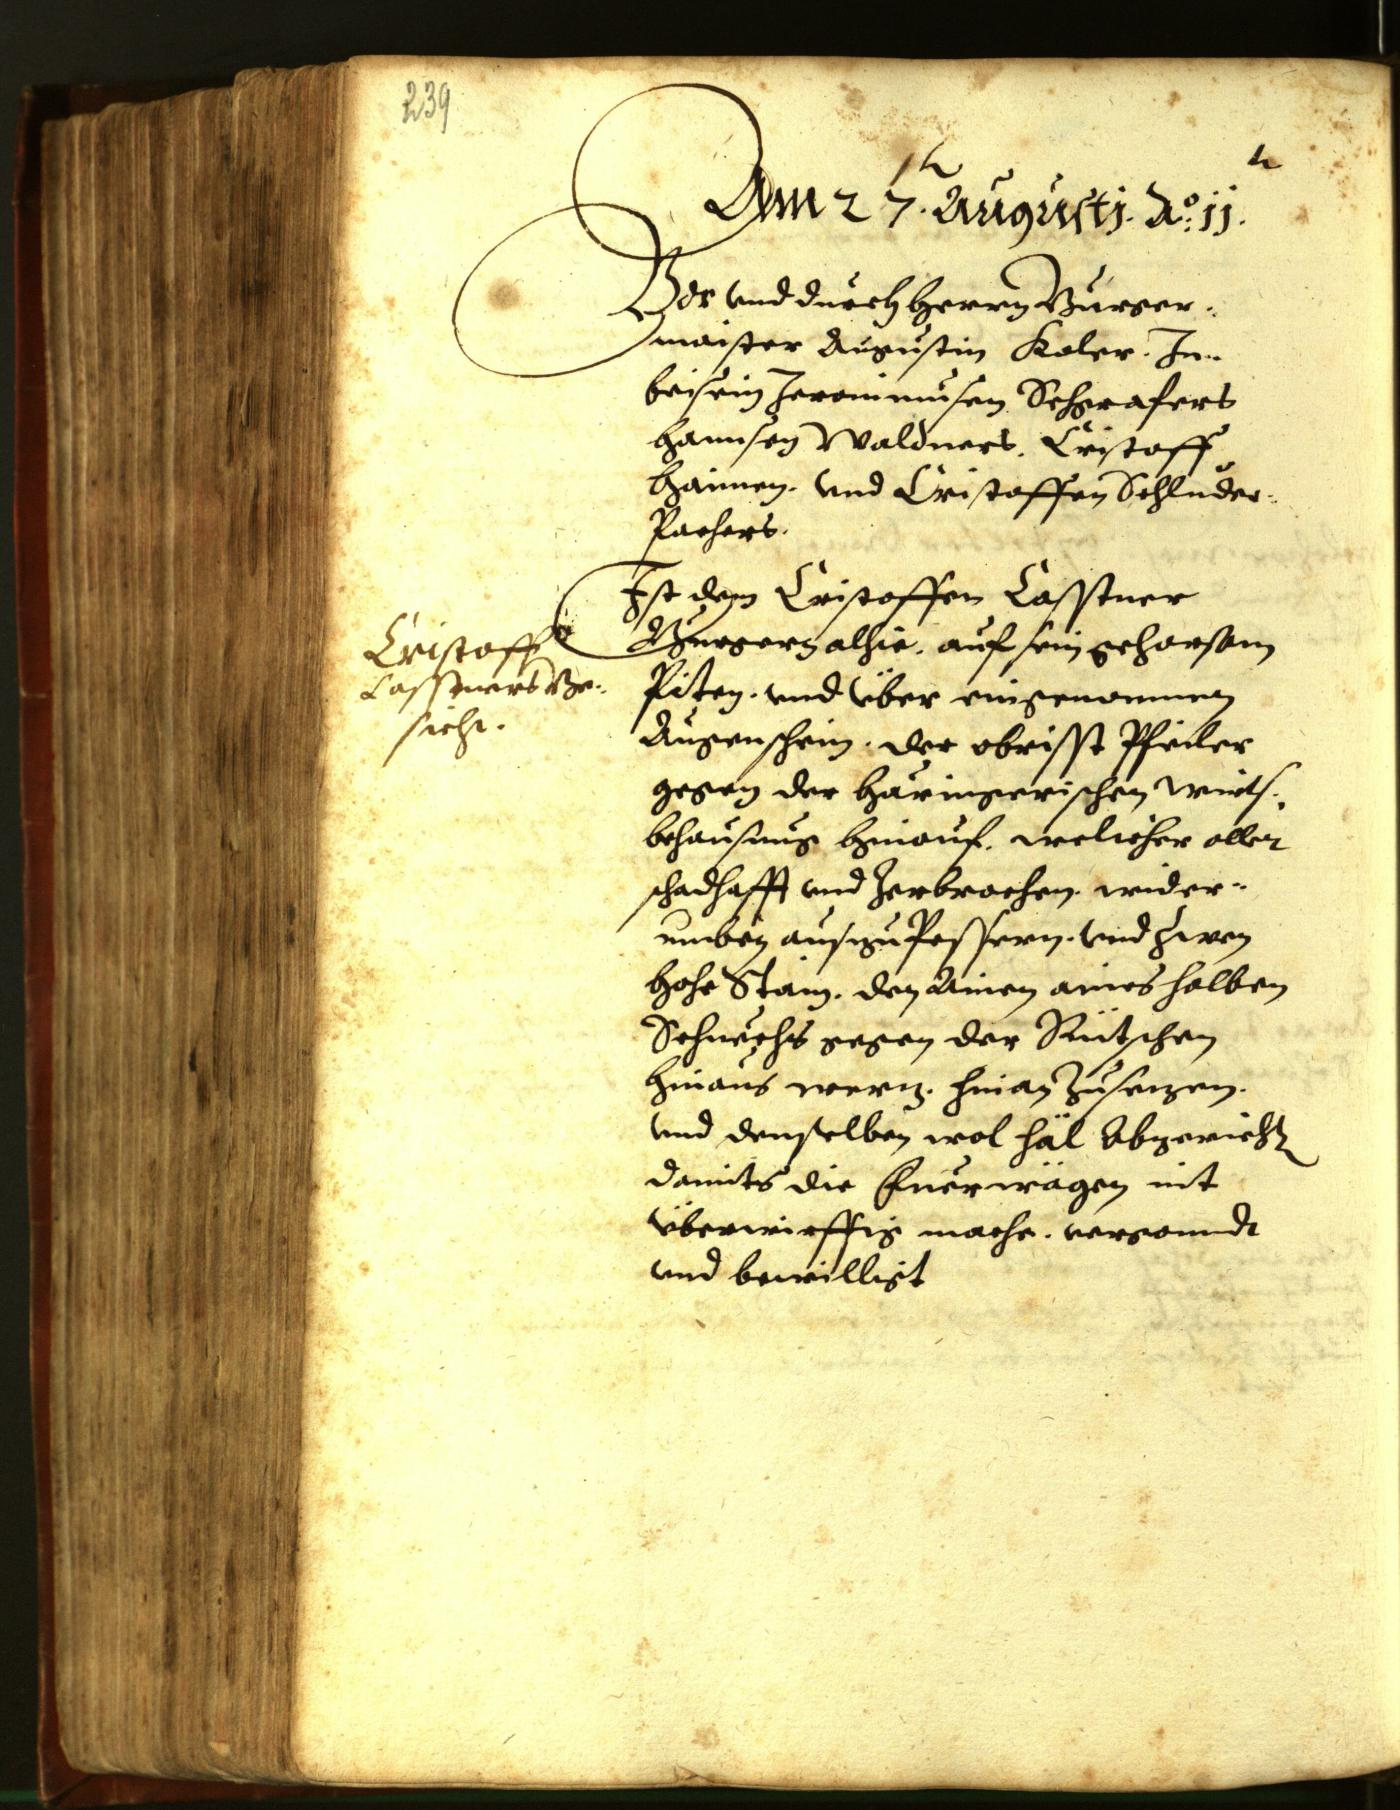 239
Am 27. Augusti. Ao. 11.
Vor vnd durch herrn Burger-
maister Augustin Koler. In-
beisein Jeronimusen Schgrafers
hannsen Waldners. Cristoff
hannen. vnd Cristoffen Schluder-
Pachers.
Ist dem Cristoffen Casstner
Burgern alhie. auf sein gehorsam
Piten. vnd über eingenomnen
Augenschein. der obrisst Pfeiler
gegen der haringerischen Wirts-
behausung hinauf. welicher aller
schadhafft vnd zerbrochen. wider-
umben auszupessern. vnd zwen
hohe Stain. den Ainen aines halben
Schuechs gegen der Rütschen
hinaus werz. hinan zusezen.
vnd denselben wol häl abgericht
damits die Fuerwägen nit
überwirffig mache. vergonndt
und bewilligt
Cristoff
Casstners Be-
sicht.